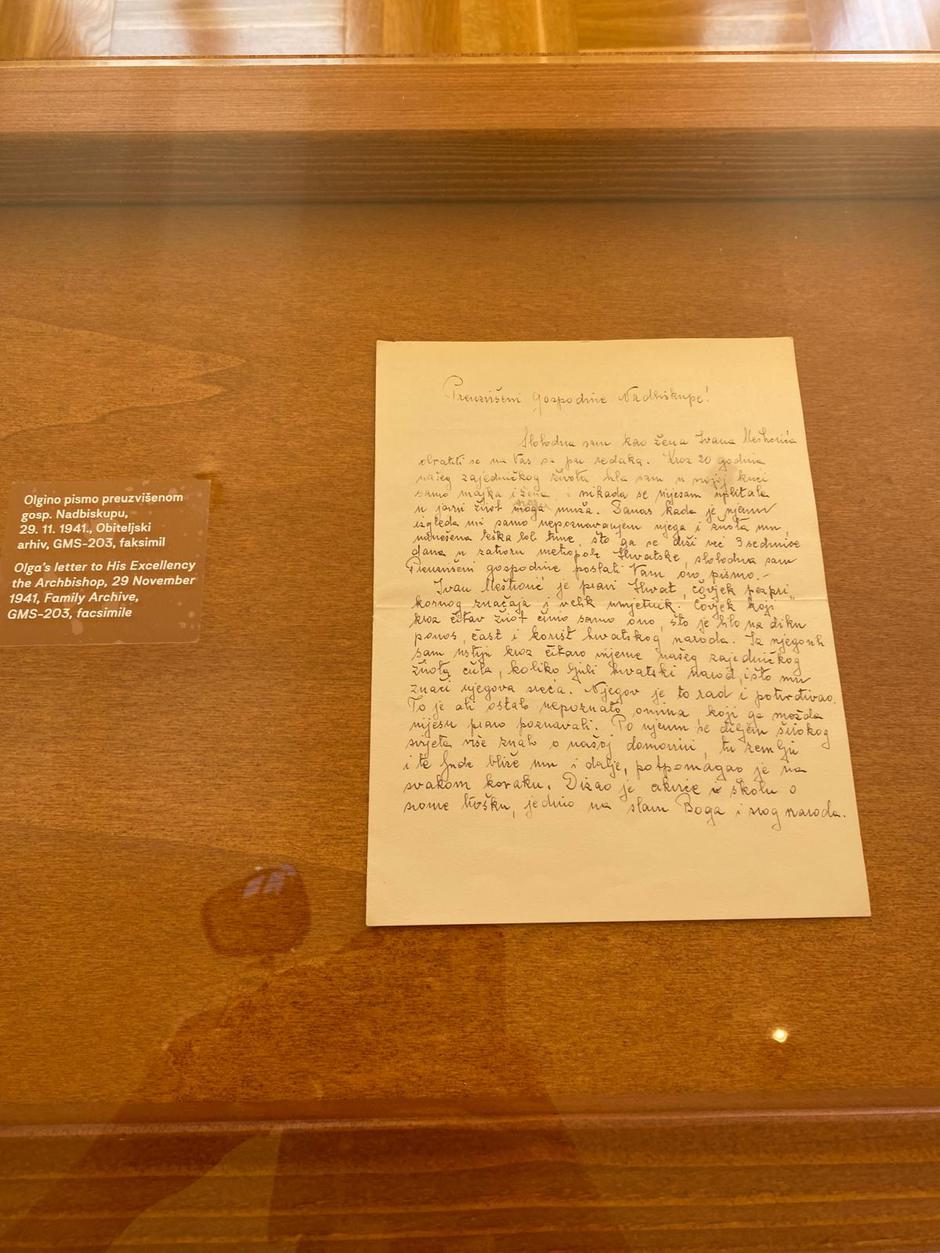 Olgino pismo preuzvišenom
gosp. Nadbiskupu,
29. 11. 1941., Obiteljski
arhiv, GMS-203, faksimil
Olga's letter to His Excellency
the Archbishop, 29 November
1941, Family Archive,
GMS-203, facsimile
Preuzvišeni gospodine Nadbiskupe!
Slobodna sam kao žena Ivana Meštrovića
obratiti se na Vas sa par redaka. Kroz 20 godina
našeg zajedničkog života bila sam u mojoj kući
samo majka i žena i nikada se nijesam uplitala
u javni život moga muža. Danas kada je njemu
izgleda mi samo nepoznavanjem njega i života mu
nanešena teška bol time, što ga se drži već 3 sedmice
dana u zatvoru metropole Hrvatske, slobodna sam
Preuzvišeni gospodine poslati Vam ovo pismo.-
Ivan Meštrović je pravi Hrvat, čovjek
kornog značaja i velik umjetnik. Čovjek koji
kroz čitav život čini samo ono, što je bilo na diku
ponos, čast i korist hrvatskog naroda. Iz njegovih
sam ustiju kroz čitavo vrijeme našeg zajedničkog
života čula, koliko ljubi hrvatski narod, i što mu
znači njegova sreća. Njegov je to rad i potvrđivao.
To je ali ostalo nepoznato onima koji ga možda
nijesu pravo poznavali. Po njemu se diljem širokog
svijeta više znalo o našoj domovini, tu zemlju
i te ljude bliže mu i dalje, potpomagao je na
svakom koraku. Dizao je crkvice i školu o
svome trošku, jedino na slavu Boga i svog naroda.